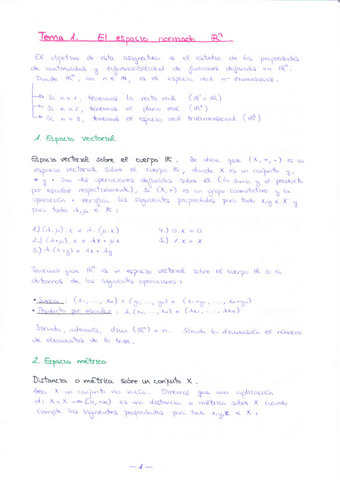 Tema 1. El espacio normado ℝⁿ
El objetivo de esta asignatura es el estudio de las propiedades
de continuidad y diferenciabilidad de funciones definidas en ℝⁿ.
Donde ℝⁿ, con n ∈ ℕ, es el espacio real n-dimensional.
Si n = 1, tenemos la recta real (ℝ¹ = ℝ)
Si n = 2, tenemos el plano real (ℝ²)
Si n = 3, tenemos el espacio real tridimensional (ℝ³)
1. Espacio vectorial
Espacio vectorial sobre el cuerpo ℝ. Se dice que (X, +, ·) es un
espacio vectorial sobre el cuerpo ℝ, donde X es un conjunto y,
+ y · son dos operaciones definidas sobre él (la suma y el producto
por escalar respectivamente), si (X, +) es un grupo conmutativo y la
operación · verifica las siguientes propiedades para todo x, y ∈ X y
para todo λ, μ ∈ ℝ:
1.) (λ·μ)·x = λ·(μ·x) 4.) 0·x = 0
2.) (λ+μ)·x = λx + μx 5.) 1·x = x
3.) λ(x+y) = λx + λy
Tenemos que ℝⁿ es un espacio vectorial sobre el cuerpo ℝ si lo
dotamos de las siguientes operaciones:
• Suma: (x₁, ..., xₙ) + (y₁, ..., yₙ) = (x₁+y₁, ..., xₙ+yₙ)
• Producto por escalar: λ·(x₁, ..., xₙ) = (λx₁, ..., λxₙ)
Siendo, además, dim (ℝⁿ) = n. Siendo la dimensión el número
de elementos de la base.
2. Espacio métrico
Distancia o métrica sobre un conjunto X.
Sea X un conjunto no vacío. Diremos que una aplicación
d: X × X → [0, ∞) es una distancia o métrica sobre X cuando
cumple las siguientes propiedades para todo x, y, z ∈ X:
— 1 —